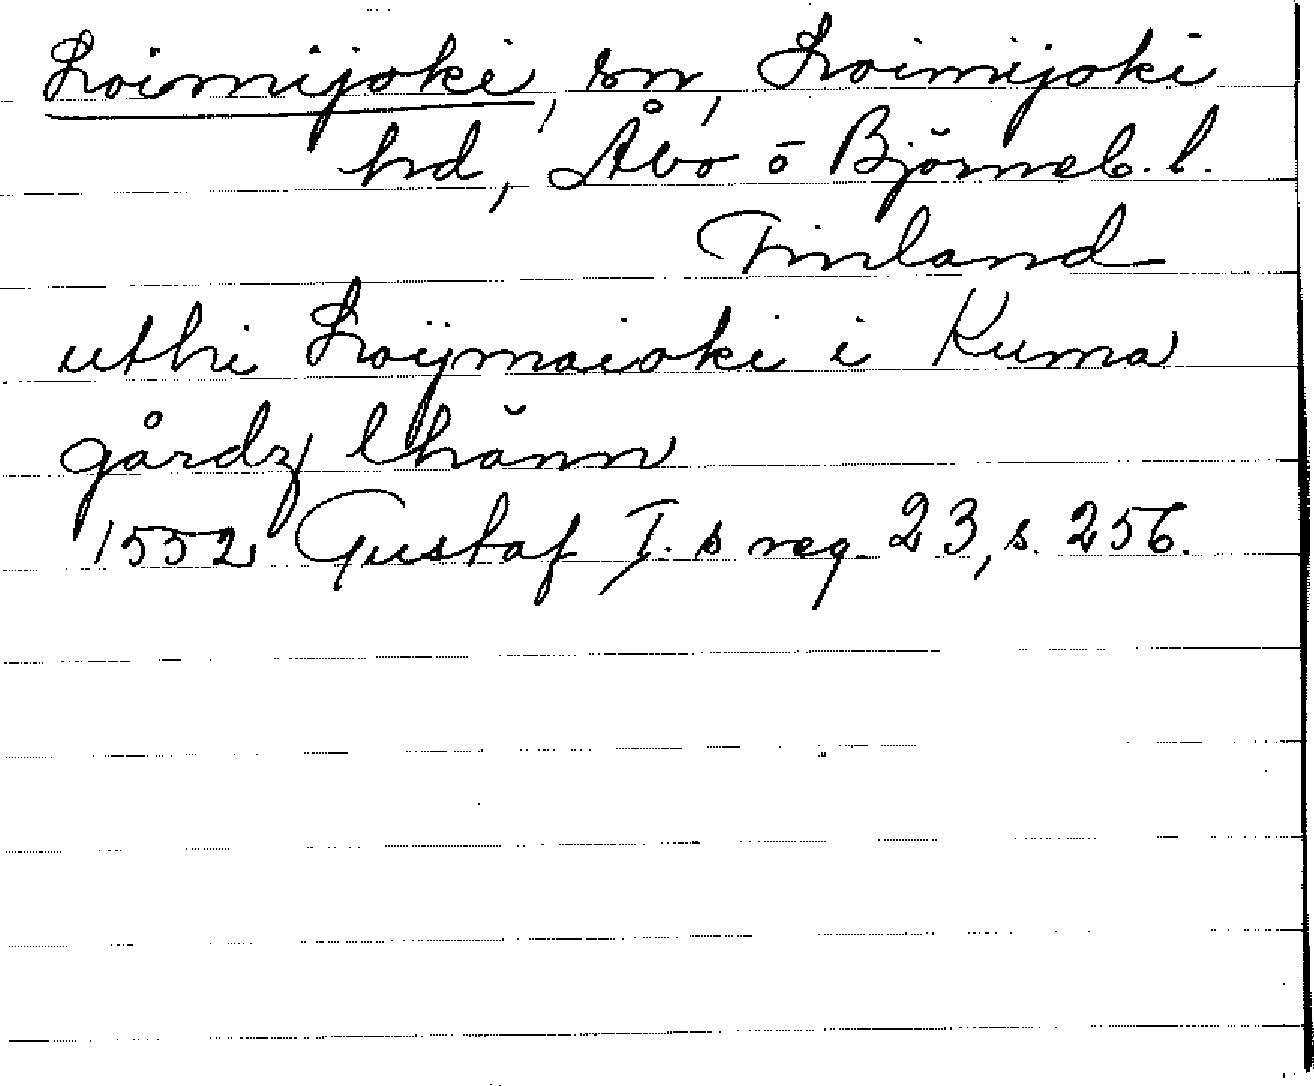 Loimijoki, sn, Loimijoki
hd, Åbo o Björneb. l.
Finland
uthi Loÿmaioki i Kuma
gårdz lhänn
1552 Gustaf I. s reg. 23, s. 256.